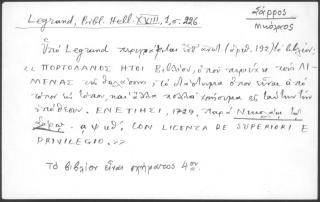 Legrand, Bibl. Hell. XVIII, 1, σ. 226
Σάρρος
Νικόλαος
Ὑπὸ Legrand περιγράφεται ὑπ' ἀριθ. (ἀριθ. 192) τὸ βιβλίον.
« ΠΟΡΤΟΛΑΝΟΣ ΗΤΟΙ Βιβλίον, ὁποῦ περιέχει τοὺς ΛΙ-
ΜΕΝΑΣ τῆς θαλάσσης, τὸ διάστημα ὁποῦ εἶναι ἀπὸ
τόπον εἰς τόπον, καὶ ἄλλα πολλὰ χρήσιμα εἰς ταύτην τὴν
ὑπόθεσιν. ΕΝΕΤΙΗΣΙ, 1729, παρὰ Νικολάῳ τῷ
Σάρῳ. αψκθ΄. CON LICENZA DE SUPERIORI E
PRIVILEGIO. »
Τὸ βιβλίον εἶναι σχήματος 4ον